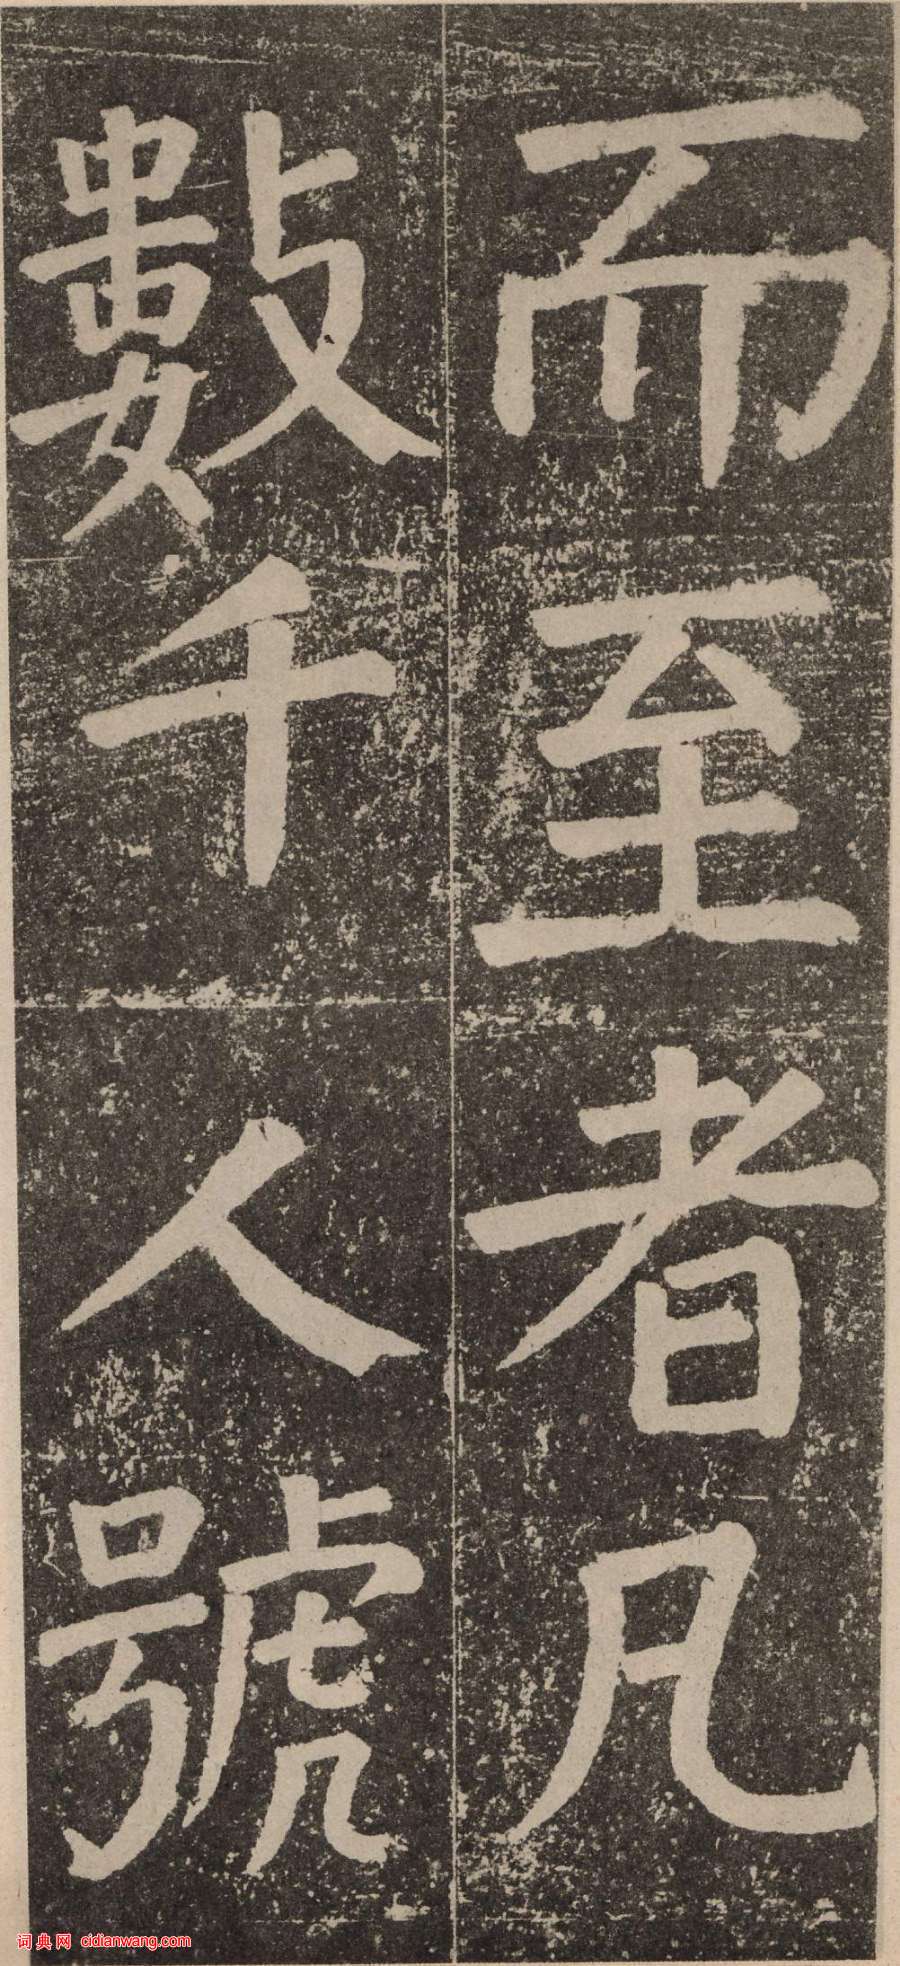 而至者凡
數千人號
词典网 cidianwang.com